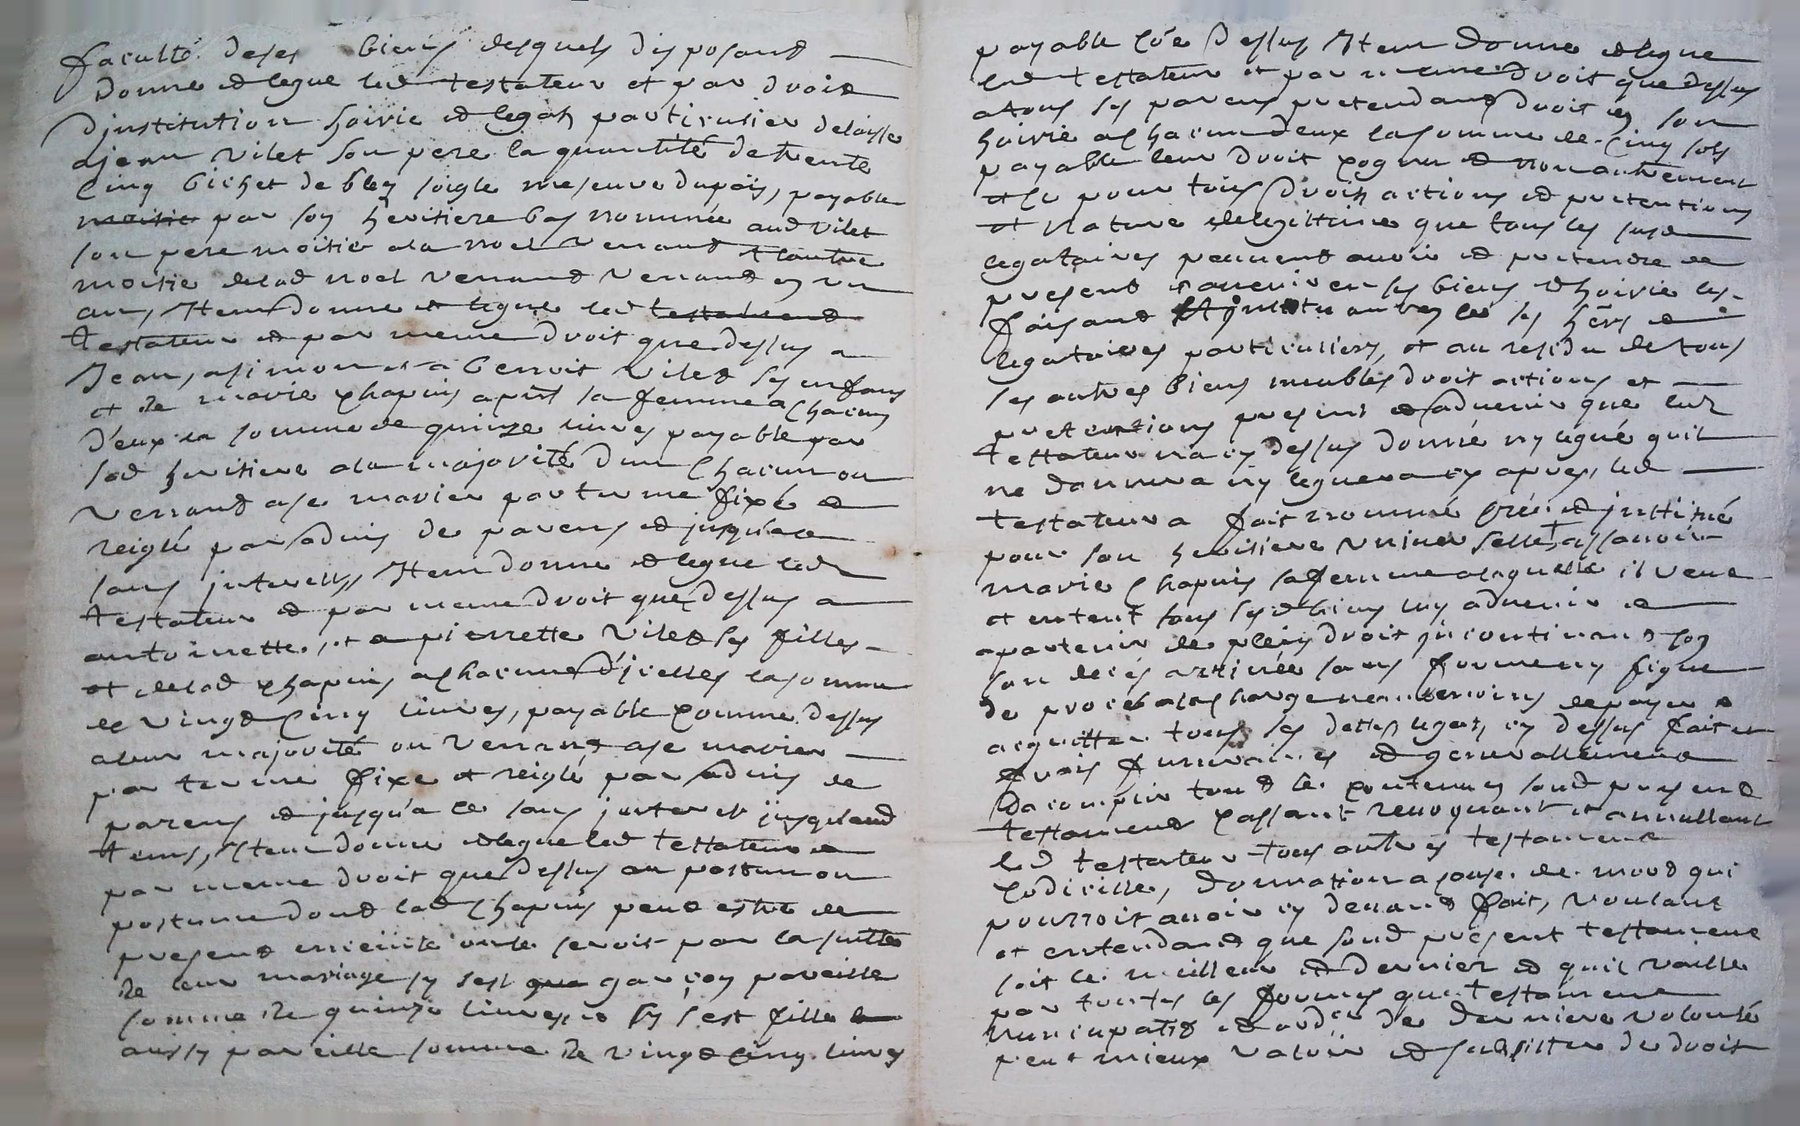 faculté de ses biens desquels disposant
donne et legue led testateur et par droit
d'institution hoirie et legat particulier delaisse
a jean vilet son pere la quantité de trente
cinq bichet de bley soigle mesure du païs, payable
moitie par soy heritiere bas nommée aud vilet
son pere moitié a la noel venant et l'autre
moitie de lad noel venant en un
an, Item donne et legue led testament
testateur et par meme droit que dessus a
Jean, a simon et a benoit vilet ses enfans
et de marie chapuis a pnt sa femme a chacun
d'eux la somme de quinze livres payable par
lad heritiere a la majorité d'un chacun ou
venant a se marier par terme fixé et
reiglé par advis de parens et jusqu'a ce
sans interests, Item donne et legue led
testateur et par meme droit que dessus a
antoinette, et a pierrette vilet ses filles
et de lad chapuis a chacune d'icelles la somme
de vingt cinq livres, payable comme dessus
a leur majorité ou venant a se marier
par terme fixe et reiglé par advis de
parens et jusqu'a ce sans interest jusqu'aud
tems, Item donne et legue led testateur et
par meme droit que dessus au postume ou
postume dont lad chapuis peut estre de
present enceinte ou le seroit par la suitte
de leur mariage sy s'est que garçon pareille
somme de quinze livres, et sy s'est fille
aussy pareille somme de vingt cinq livres
payable cõe dessus Item donne et legue
led testateur et par meme droit que dessus
a tous ses parens pretendans droit en son
hoirie a chacun deux la somme de cinq sols
payable leur droit cognu et non autrement
et ce pour tous droits actions et pretentions
et nature de legittime que tous les susd
legataires peuvent avoir et pretendre de
present et a l'avenir en ses biens et hoirie les
faisant ses hers et
legataires particuliers, et au residu de tous
ses autres biens meubles droit actions et
pretentions presens et advenir que led
testateur n'a cy dessus donné ny legué qu'il
ne donnera ny leguera cy apres, led
testateur a fait nommé créé et institué
pour son heritiere universelle, a sçavoir
marie chapuis sa femme a laquelle il veut
et entent tous sesd biens luy advenir et
apartenir de plein droit incontinent
son decés arrivée sans forme ny figure
de procés a la charge neantmoins de payer et
acquitter tous ses dettes legats, cy dessus faits
frais funeraires et generallement
d'acomplir tout le contenu en sond present
testament cassant revoquant et annullant
led testateur tous autres testament
codicille, donnation a cause de mort qui
pourroit avoir cy devant fait, voulant
et entendant que sond present testament
soit le meilleur et dernier et qu'il vaille
par toutes les formes que testament
nuncupatif et ordre de derniere volonté
peut mieux valoir et subsister de droit